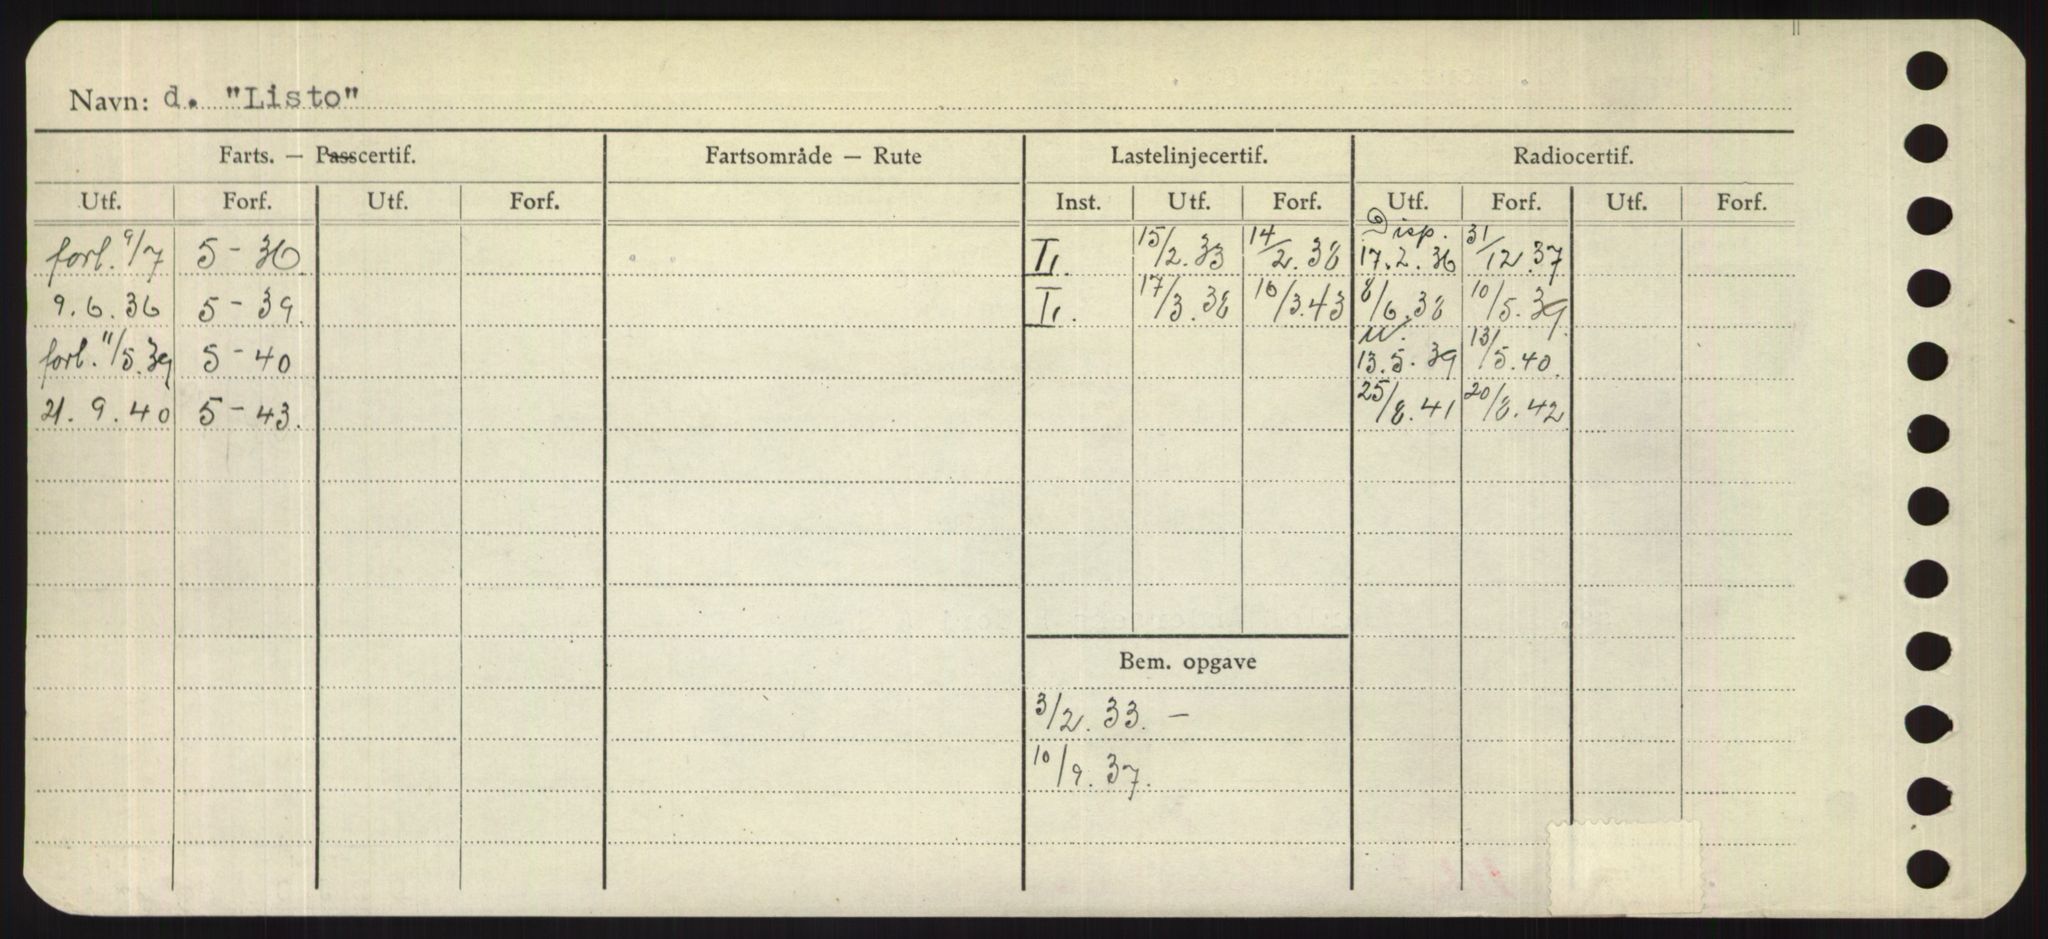 Navn: d. "Listo"
Farts. — Passcertif. Fartsområde — Rute Lastelinjecertif. Radiocertif.
Utf. Forf. Utf. Forf. Inst. Utf. Forf. Utf. Forf. Utf. Forf.
Disp.
forl. 9/7 5 - 36 I. 15/2.33 14/2.38 17.2.36 31/12.37
9.6.36 5 - 39. I. 17/3.38 16/3.43 8/6.38 10/5.39.
forl. 11/5.39 5 - 40 13.5.39 13/5.40.
21.9.40 5 - 43. 25/8.41 20/8.42
Bem. opgave
3/2.33. —
10/9.37.